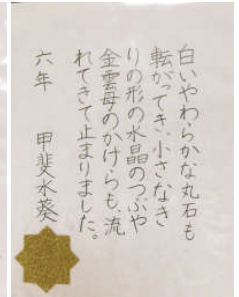 白いやわらかな丸石も
転がってき、小さなき
りの形の水晶のつぶや
金雲母のかけらも、流
れてきて止まりました。
六年　甲斐水葵